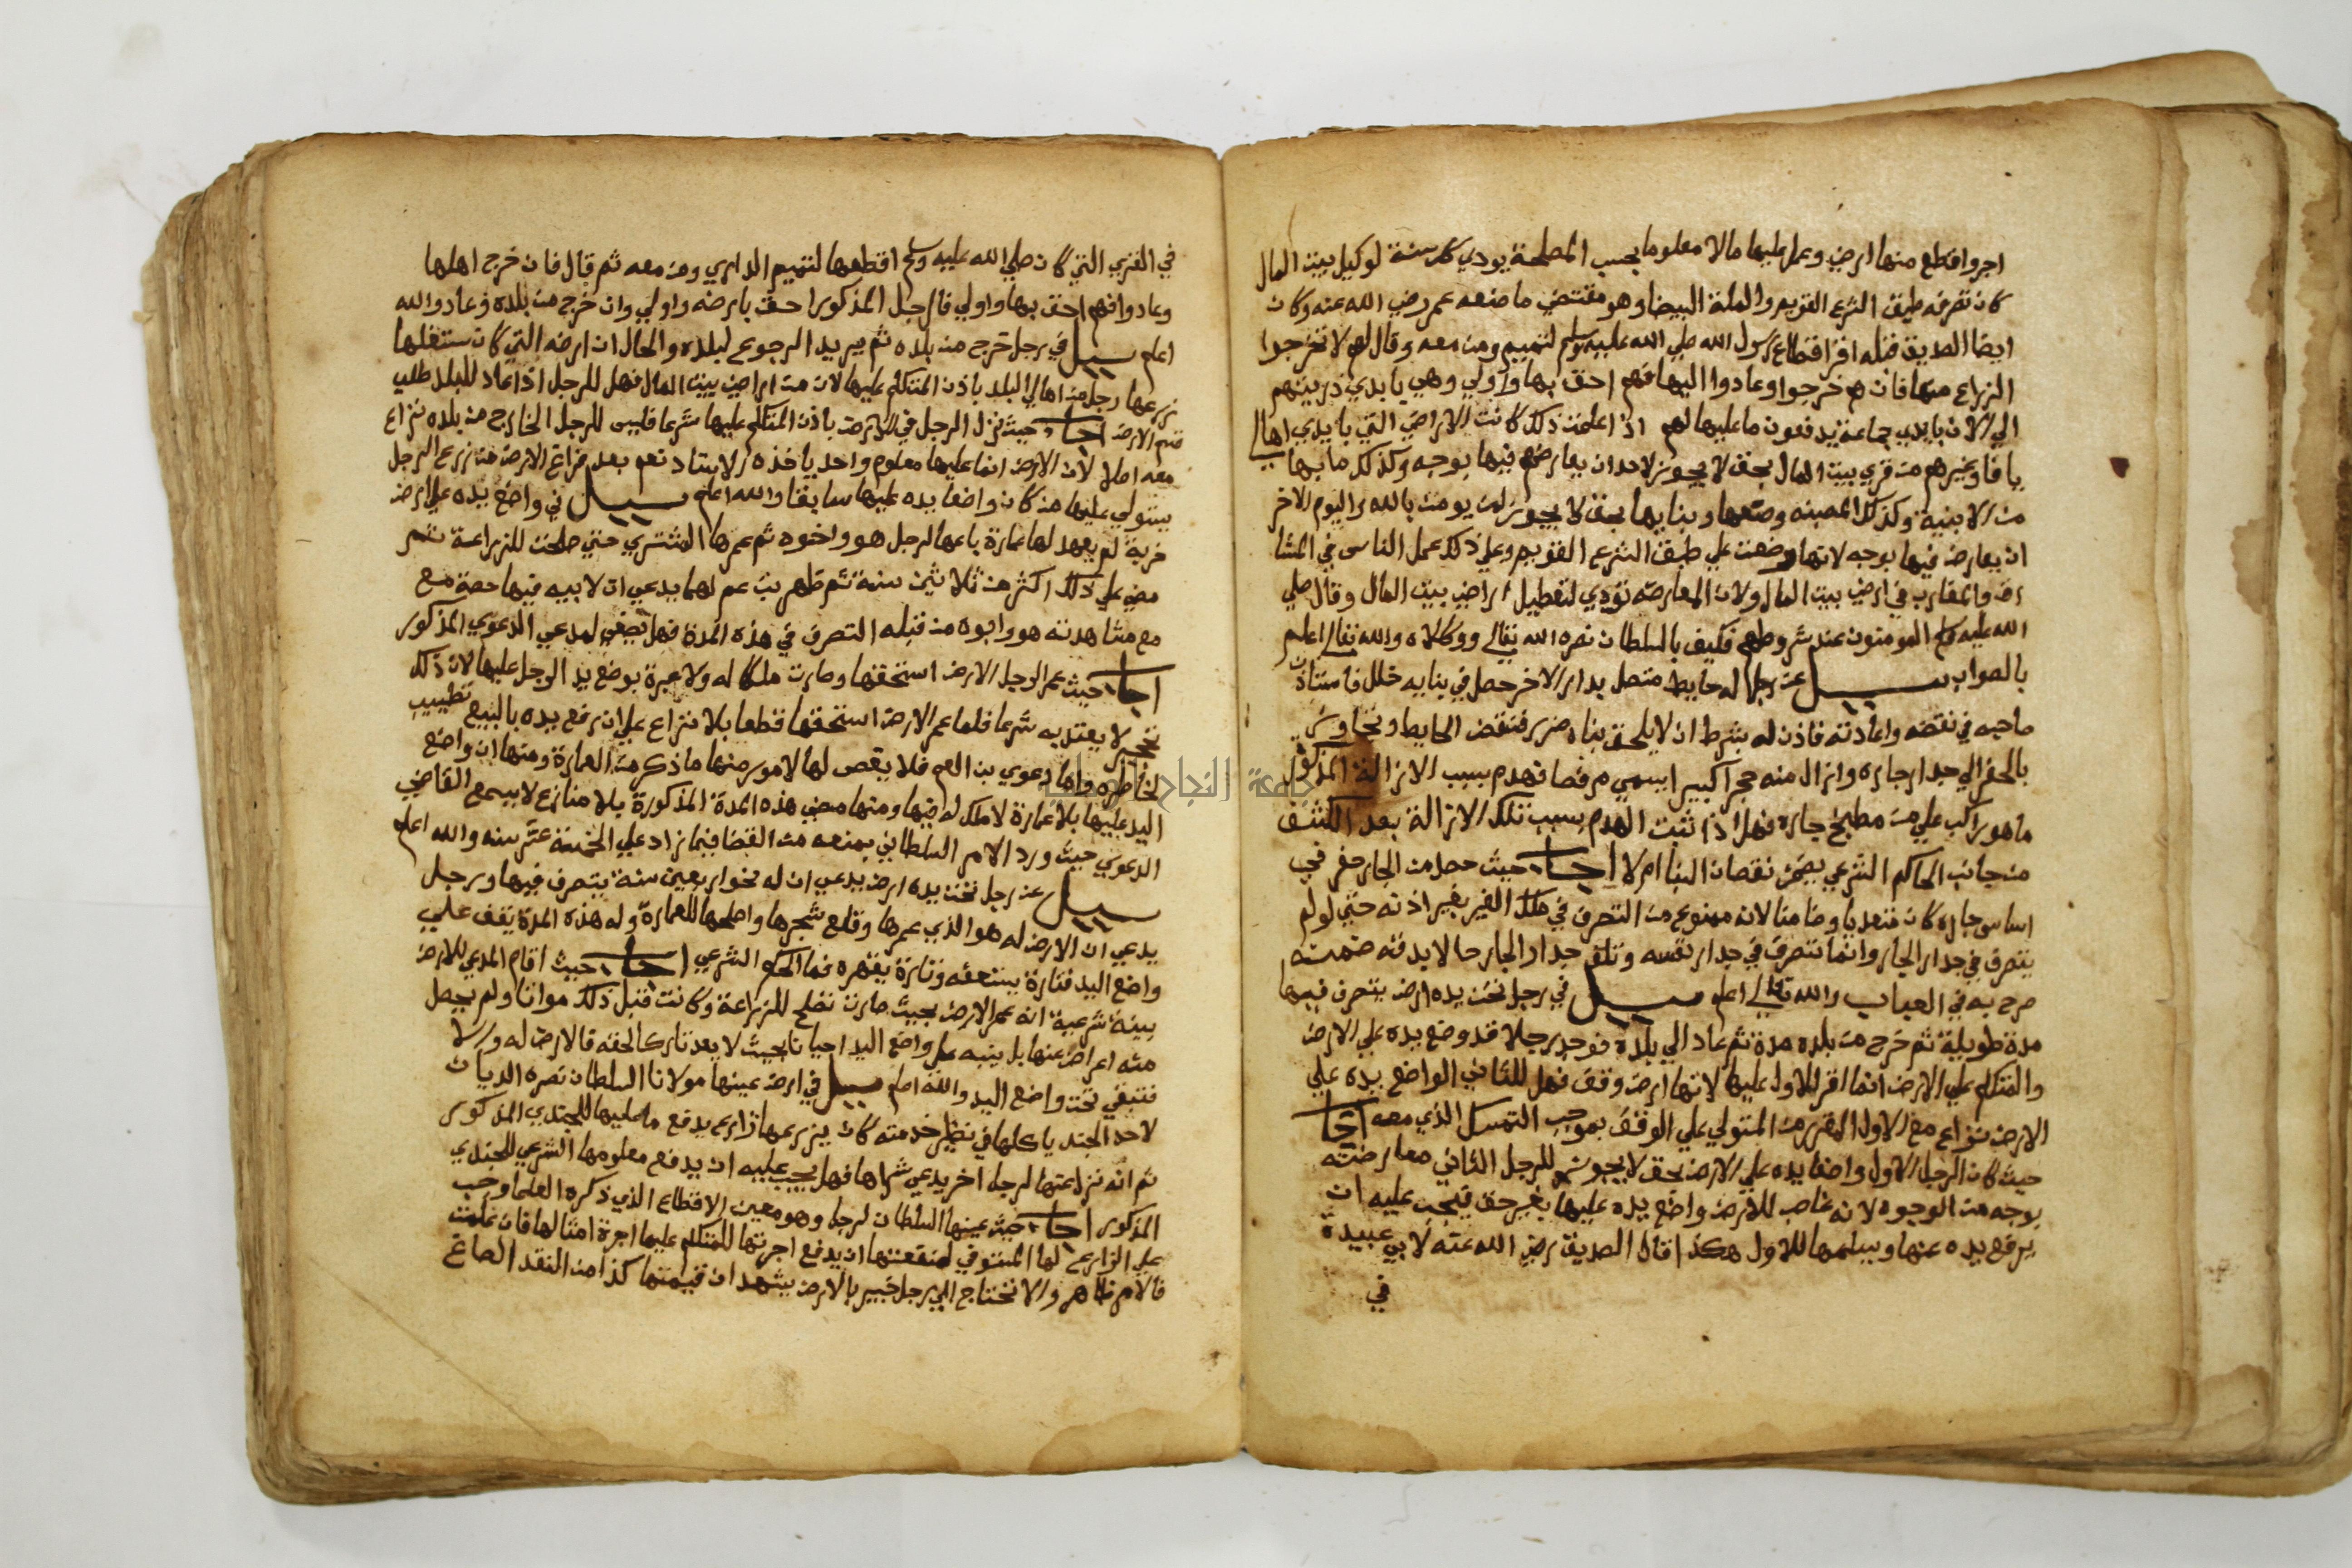 اجروا قطع منها ارض وعمل عليها مالا معلوما بحسب المصلحة يودي كل سنة لوكيل بيت المال
كان تصرفه طبق الشرع القويم والملة البيضا وهو مقتضي ما صنعه عمر رضي الله عنه وكان
ايضا الصديق قبله اقر اقطاع رسول الله صلي الله عليه وسلم لتميم ومن معه وقال لهم لا تخرجوا
الزراع منها فان هم خرجوا وعادوا اليها فهم احق بها واولي وهي بايدي ذريتهم
الي الان بايدي جماعة يدفعون ما عليها لهم اذا علمت ذلك كانت الاراضي التي بايدي اهالي
يافا وغيرهم من قري بيت المال بحق لا يجوز لاحد ان يعارضهم فيها بوجه وكذلك ما بها
من الابنية وكذلك المصبنه وصنعها وبنايها بحق لا يجوز لمن يومن بالله واليوم الاخر
ان يعارض فيها بوجه لانها وضعت علي طبق الشرع القويم وعلي ذلك عمل الناس في المشا
رق والمغارب في ارض بيت المال ولان المعارضه تؤدي لتعطيل اراضي بيت المال وقال صلي
الله عليه وسلم المومنون عند شروطهم فكيف بالسلطان نصره الله تعالي ووكلاه والله تعالي اعلم
بالصواب سيل عن رجل له حايط متصل بدار الاخر حصل في بنايه خلل فاستاذن
صاحبه في نقضه واعادته فاذن له بشرط ان لا يلحق بناه ضرر فنقض الحايط وتجاوز
بالحفر الي جدار جاره وازال منه حجرا كبيرا يسمي مرفصا فهدم بسبب الازالة المذكور
ما هو راكب علي من مطبخ جاره فهل اذا ثبت الهدم بسبب تلك الازالة بعد الكشف
من جانب الحاكم الشرعي يضمن نقصان البنا ام لا اجاب حيث حصل من الجار حفر في
اساس جاره كان متعديا وضامنا لانه ممنوع من التصرف في ملك الغير بغير اذنه حتي لو لم
يتصرف في جدار الجار وانما تصرف في جدار نفسه وتلف جدار الجار حالا بدقه ضمنه
صرح به في العباب والله تعالي اعلم سيل في رجل تحت يده ارض يتصرف فيها
مدة طويلة ثم خرج من بلده مدة ثم عاد الي بلده فوجد رجلا قد وضع يده علي الارض
والمتكلم علي الارض انما اقر للاول عليها لانها ارض وقف فهل للثاني الواضع يده علي
الارض نزاع مع الاول المقرر من المتولي علي الوقف بموجب التمسك الذي معه اجاب
حيث كان الرجل الاول واضعا يده علي الارض بحق لا يجوز للرجل الثاني معارضته
بوجه من الوجوه لانه غاصب للارض واضع يده عليها بغير حق فيجب عليه ان
يرفع يده عنها ويسلمها للاول هكذا قال الصديق رضي الله عنه لابي عبيدة
في
في القري التي كان صلي الله عليه وسلم اقطعها لتميم الداري ومن معه ثم قال فان خرج اهلها
وعادوا فهم احق بها واولي فالرجل المذكور احق بارضه واولي وان خرج من بلده وعاد والله
اعلم سيل في رجل خرج من بلده ثم يريد الرجوع لبلده والحال ان ارضه التي كان ستغلها
زرعها رجل من اهالي البلد باذن المتكلم عليها لان من اراضي بيت المال فهل للرجل اذا عاد للبلد طلب
قسم الارض اجاب حيث نزل الرجل في الارض باذن المتكلم عليها شرعا فليس للرجل الخارج من بلده نزاع
معه اصلا لان الارض انما عليها معلوم واحد ياخذه الاستاد نعم بعد فراغ الارض من زرع الرجل
يستولي عليها من كان واضعا يده عليها سابقا والله اعلم سيل في واضع يده علي ارض
خربة لم يعهد لها عمارة باعها لرجل هو واخوه ثم عمرها المشتري حتي صلحت للزراعة ثم
مضي علي ذلك اكثر من ثلاثين سنة ثم ظهر بن عم لهما يدعي ان لابيه فيها حصة مع
مع مشاهدته هو وابوه من قبله التصرف في هذه المدة فهل يصغي لمدعي الدعوي المذكور
اجاب حيث عمر الرجل الارض استحقها وصارت ملكا له ولا عبرة بوضع يد الرجل عليها لان ذلك
تحجير لا يعتد به شرعا فلما عمر الارض استحقها قطعا بلا نزاع علي ان رفع يده بالبيع تطييب
لخاطره واما دعوي بن العم فلا يقص لها لامور منها ما ذكر من العمارة ومنها ان واضع
اليد عليها بلا عمارة لا ملك له فيها ومنها مضي هذه المدة المذكورة بلا منازع لا يسمع القاضي
الدعوي حيث ورد الامر السلطاني بمنعه من القضا فيما زاد علي الخمسة عشر سنه والله اعلم
سيل عن رجل تحت يده ارض يدعي ان له نحو اربعين سنة يتصرف فيها ورجل
يدعي ان الارض له هو الذي عمرها وقلع شجرها واصلحها للعمارة وله هذه المدة يقف علي
واضع اليد فتارة يستعفه وتارة يقهره فما الحكم الشرعي اجاب حيث اقام المدعي للارض
بينة شرعية انه عمر الارض بحيث صارت تصلح للزراعة وكانت قبل ذلك مواتا ولم يحصل
منه اعراض عنها بل ينبه علي واضع اليد احيانا بحيث لا يعد تاركا لحقه فالارض له ولا
فتبقي تحت واضع اليد والله اعلم سيل في ارض عينها مولانا السلطان نصره الديان
لاحد الجند ياكلها في نظير خدمته كان يزرعها زارع يدفع ما عليها للجندي المذكور
ثم انه نزل عنها لرجل اخر يدعي شراها فهل يجب عليه ان يدفع معلومها الشرعي للجندي
المذكور اجاب حيث عينها السلطان لرجل وهو معين الاقطاع الذي ذكره العلما وجب
علي الزارع لها المستوفي لمنفعتها ان يدفع اجرتها للمتكلم عليها اجرة امثالها فان علمت
فالامر ظاهر والا نحتاج الي رجل خبير بالارض يشهد ان قيمتها كذا من النقد الصاغ
جامعة النجاح